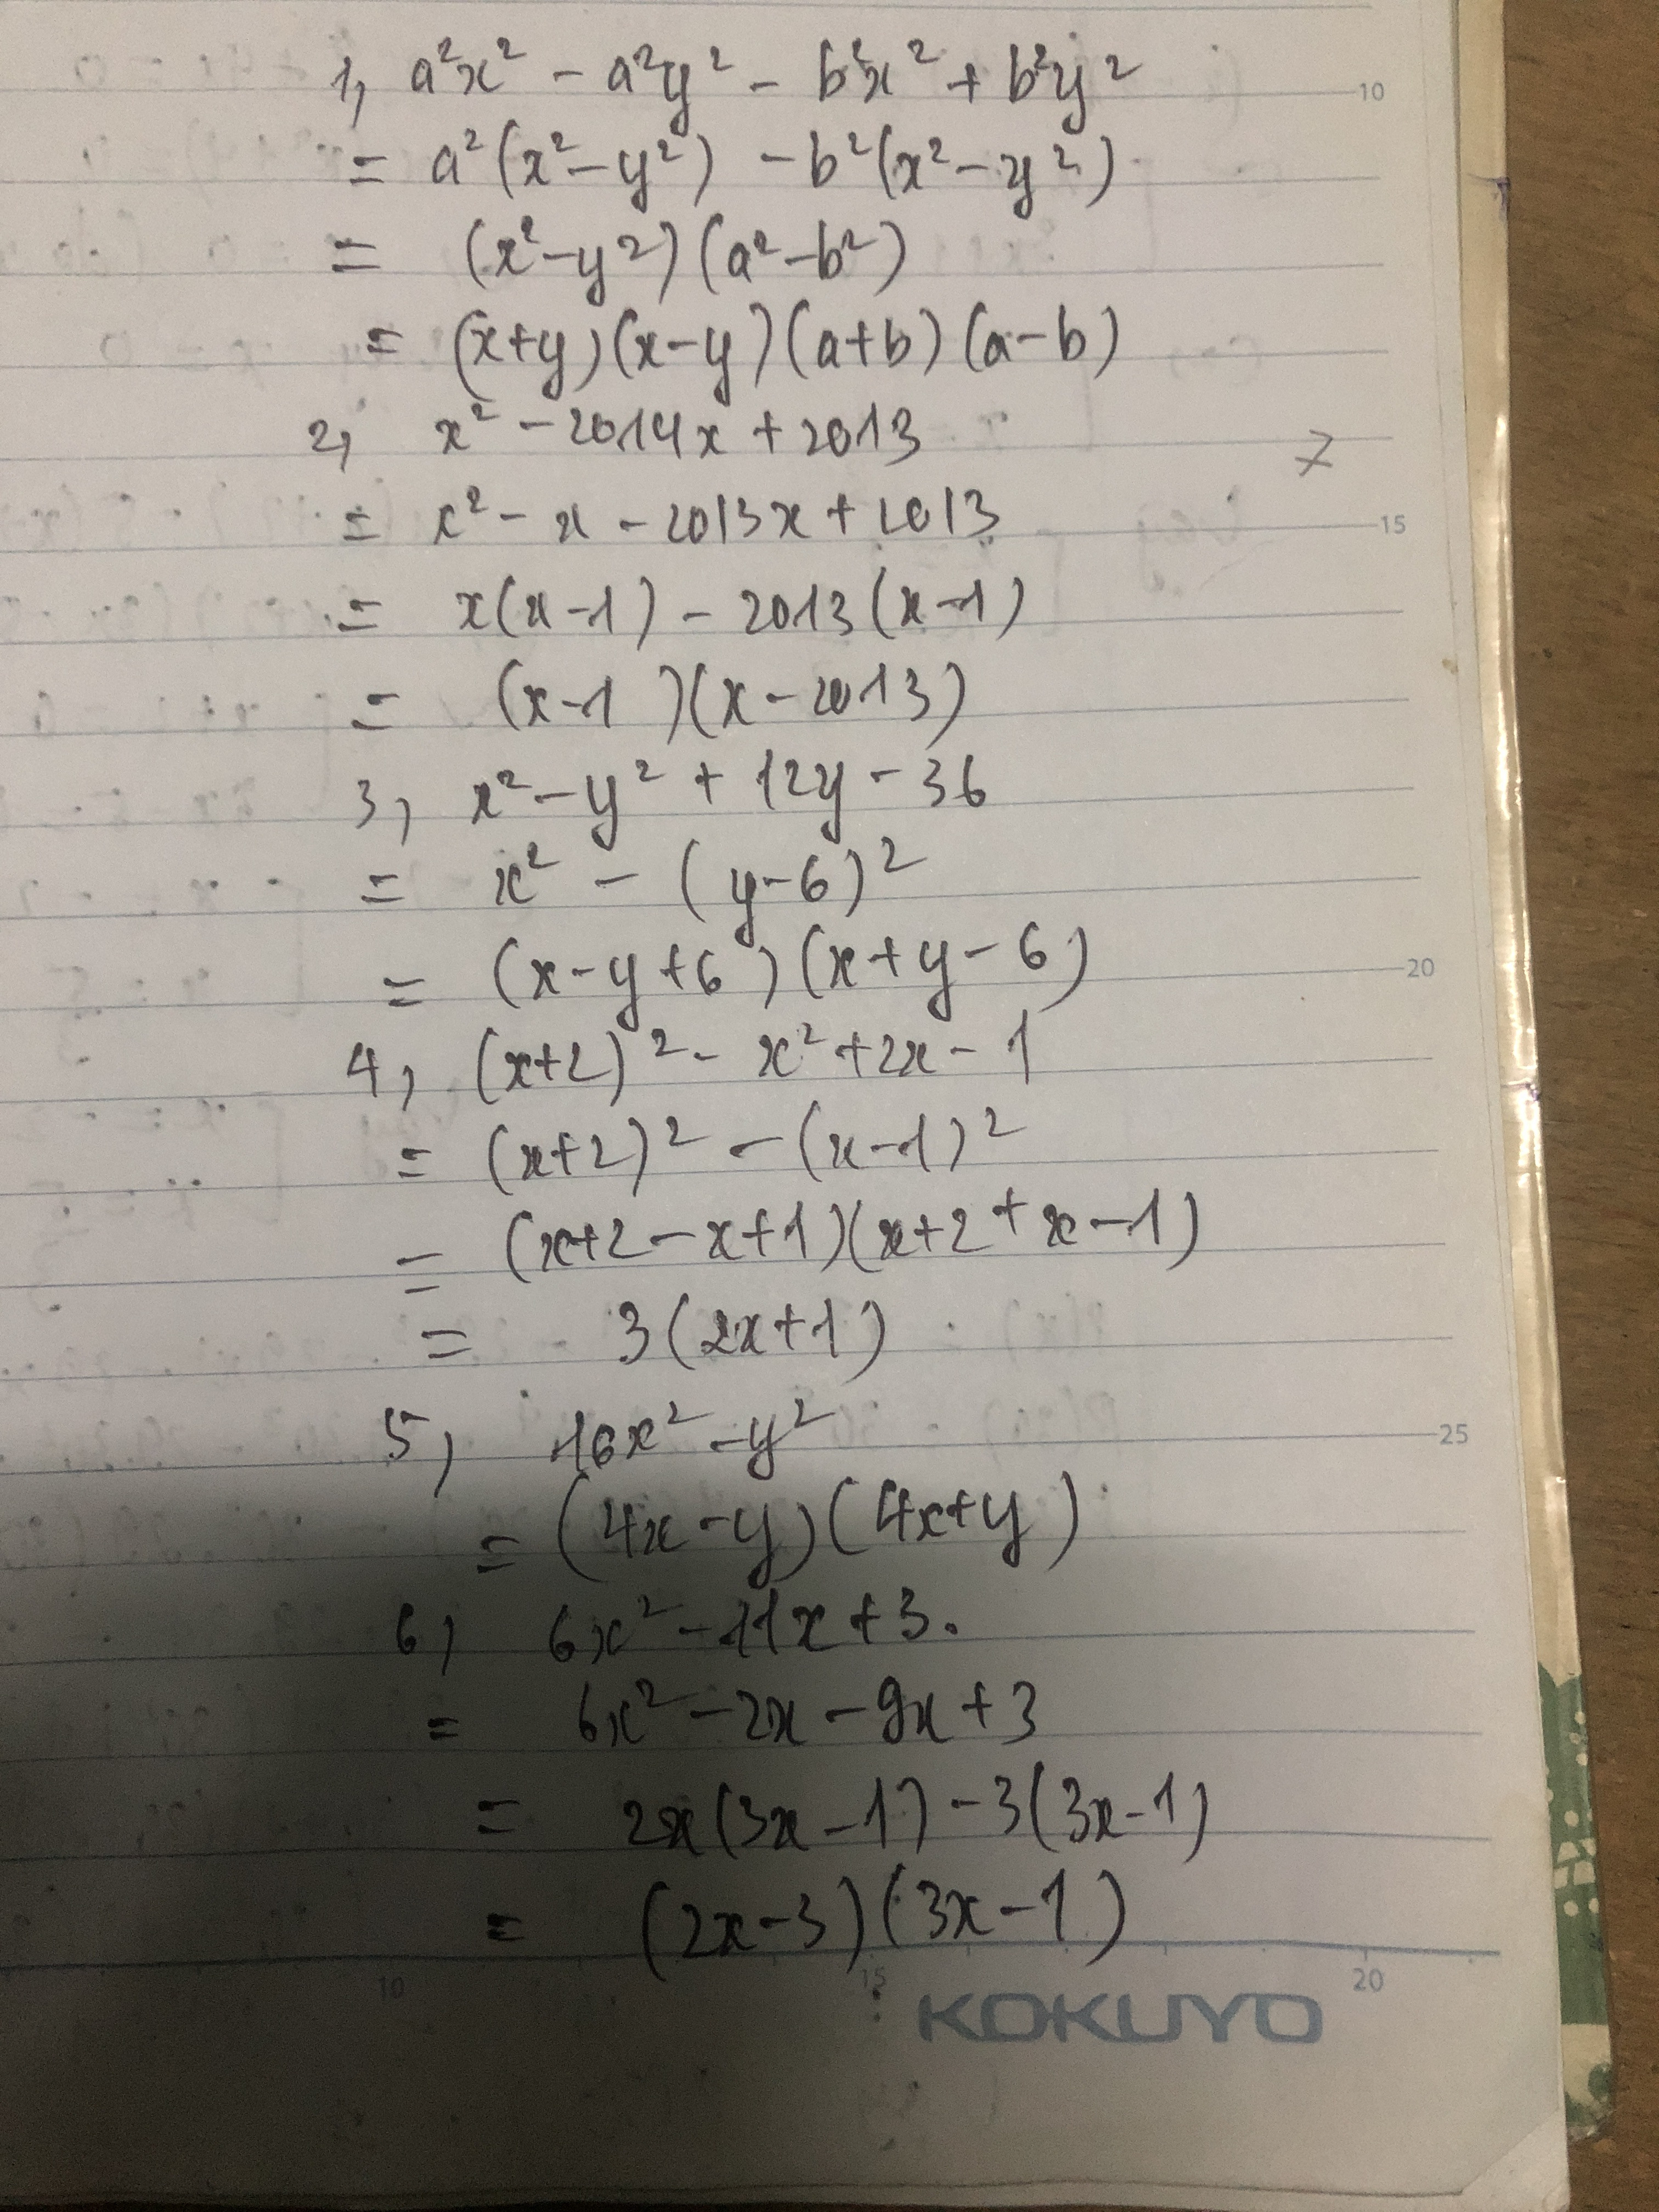 1, a²x² - a²y² - b²x² + b²y²
10
= a²(x² - y²) - b²(x² - y²)
= (x² - y²)(a² - b²)
= (x+y)(x-y)(a+b)(a-b)
2, x² - 2014x + 2013
= x² - x - 2013x + 2013
15
= x(x-1) - 2013(x-1)
= (x-1)(x-2013)
3, x² - y² + 12y - 36
= x² - (y-6)²
= (x-y+6)(x+y-6)
20
4, (x+2)² - x² + 2x - 1
= (x+2)² - (x-1)²
= (x+2-x+1)(x+2+x-1)
= 3(2x+1)
5, 16x² - y²
25
= (4x-y)(4x+y)
6, 6x² - 11x + 3.
= 6x² - 2x - 9x + 3
= 2x(3x-1) - 3(3x-1)
= (2x-3)(3x-1)
10 15 20
KOKUYO